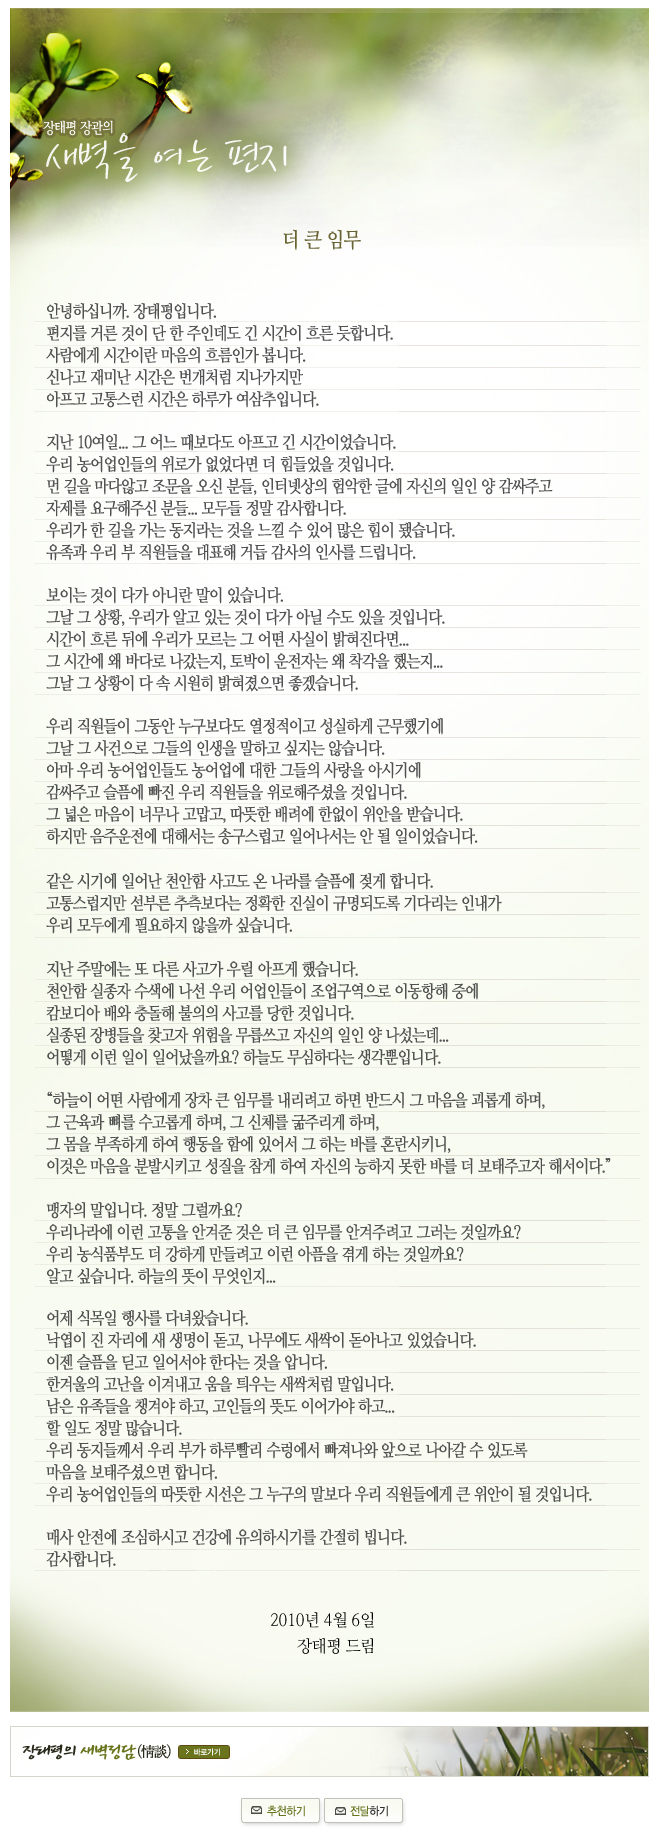 장태평 장관의
새벽을 여는 편지
더 큰 임무
안녕하십니까. 장태평입니다.
편지를 거른 것이 단 한 주인데도 긴 시간이 흐른 듯합니다.
사람에게 시간이란 마음의 흐름인가 봅니다.
신나고 재미난 시간은 번개처럼 지나가지만
아프고 고통스런 시간은 하루가 여삼추입니다.
지난 10여일... 그 어느 때보다도 아프고 긴 시간이었습니다.
우리 농어업인들의 위로가 없었다면 더 힘들었을 것입니다.
먼 길을 마다않고 조문을 오신 분들, 인터넷상의 험악한 글에 자신의 일인 양 감싸주고
자제를 요구해주신 분들... 모두들 정말 감사합니다.
우리가 한 길을 가는 동지라는 것을 느낄 수 있어 많은 힘이 됐습니다.
유족과 우리 부 직원들을 대표해 거듭 감사의 인사를 드립니다.
보이는 것이 다가 아니란 말이 있습니다.
그날 그 상황, 우리가 알고 있는 것이 다가 아닐 수도 있을 것입니다.
시간이 흐른 뒤에 우리가 모르는 그 어떤 사실이 밝혀진다면...
그 시간에 왜 바다로 나갔는지, 토박이 운전자는 왜 착각을 했는지...
그날 그 상황이 다 속 시원히 밝혀졌으면 좋겠습니다.
우리 직원들이 그동안 누구보다도 열정적이고 성실하게 근무했기에
그날 그 사건으로 그들의 인생을 말하고 싶지는 않습니다.
아마 우리 농어업인들도 농어업에 대한 그들의 사랑을 아시기에
감싸주고 슬픔에 빠진 우리 직원들을 위로해주셨을 것입니다.
그 넓은 마음이 너무나 고맙고, 따뜻한 배려에 한없이 위안을 받습니다.
하지만 음주운전에 대해서는 송구스럽고 일어나서는 안 될 일이었습니다.
같은 시기에 일어난 천안함 사고도 온 나라를 슬픔에 젖게 합니다.
고통스럽지만 섣부른 추측보다는 정확한 진실이 규명되도록 기다리는 인내가
우리 모두에게 필요하지 않을까 싶습니다.
지난 주말에는 또 다른 사고가 우릴 아프게 했습니다.
천안함 실종자 수색에 나선 우리 어업인들이 조업구역으로 이동항해 중에
캄보디아 배와 충돌해 불의의 사고를 당한 것입니다.
실종된 장병들을 찾고자 위험을 무릅쓰고 자신의 일인 양 나섰는데...
어떻게 이런 일이 일어났을까요? 하늘도 무심하다는 생각뿐입니다.
“하늘이 어떤 사람에게 장차 큰 임무를 내리려고 하면 반드시 그 마음을 괴롭게 하며,
그 근육과 뼈를 수고롭게 하며, 그 신체를 굶주리게 하며,
그 몸을 부족하게 하여 행동을 함에 있어서 그 하는 바를 혼란시키니,
이것은 마음을 분발시키고 성질을 참게 하여 자신의 능하지 못한 바를 더 보태주고자 해서이다.”
맹자의 말입니다. 정말 그럴까요?
우리나라에 이런 고통을 안겨준 것은 더 큰 임무를 안겨주려고 그러는 것일까요?
우리 농식품부도 더 강하게 만들려고 이런 아픔을 겪게 하는 것일까요?
알고 싶습니다. 하늘의 뜻이 무엇인지...
어제 식목일 행사를 다녀왔습니다.
낙엽이 진 자리에 새 생명이 돋고, 나무에도 새싹이 돋아나고 있었습니다.
이젠 슬픔을 딛고 일어서야 한다는 것을 압니다.
한겨울의 고난을 이겨내고 움을 틔우는 새싹처럼 말입니다.
남은 유족들을 챙겨야 하고, 고인들의 뜻도 이어가야 하고...
할 일도 정말 많습니다.
우리 동지들께서 우리 부가 하루빨리 수렁에서 빠져나와 앞으로 나아갈 수 있도록
마음을 보태주셨으면 합니다.
우리 농어업인들의 따뜻한 시선은 그 누구의 말보다 우리 직원들에게 큰 위안이 될 것입니다.
매사 안전에 조심하시고 건강에 유의하시기를 간절히 빕니다.
감사합니다.
2010년 4월 6일
장태평 드림
장태평의 새벽정담(情談) 바로가기
추천하기 전달하기